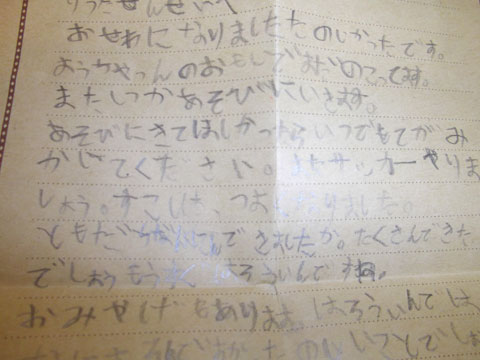 りうたせんせいへ
おせわになりましたたのしかったです。
ようちえんのおもいでまだのこってます。
またいつかあそびにいきます。
あそびにきてほしかったらいつでもてがみ
かいてください。またサッカーやりま
しょう。すこしは、つよくなりました。
ともだちなんにんできましたか。たくさんできた
でしょうもうすぐはろうぃんですね。
おみやげもあります。はろうぃんでは